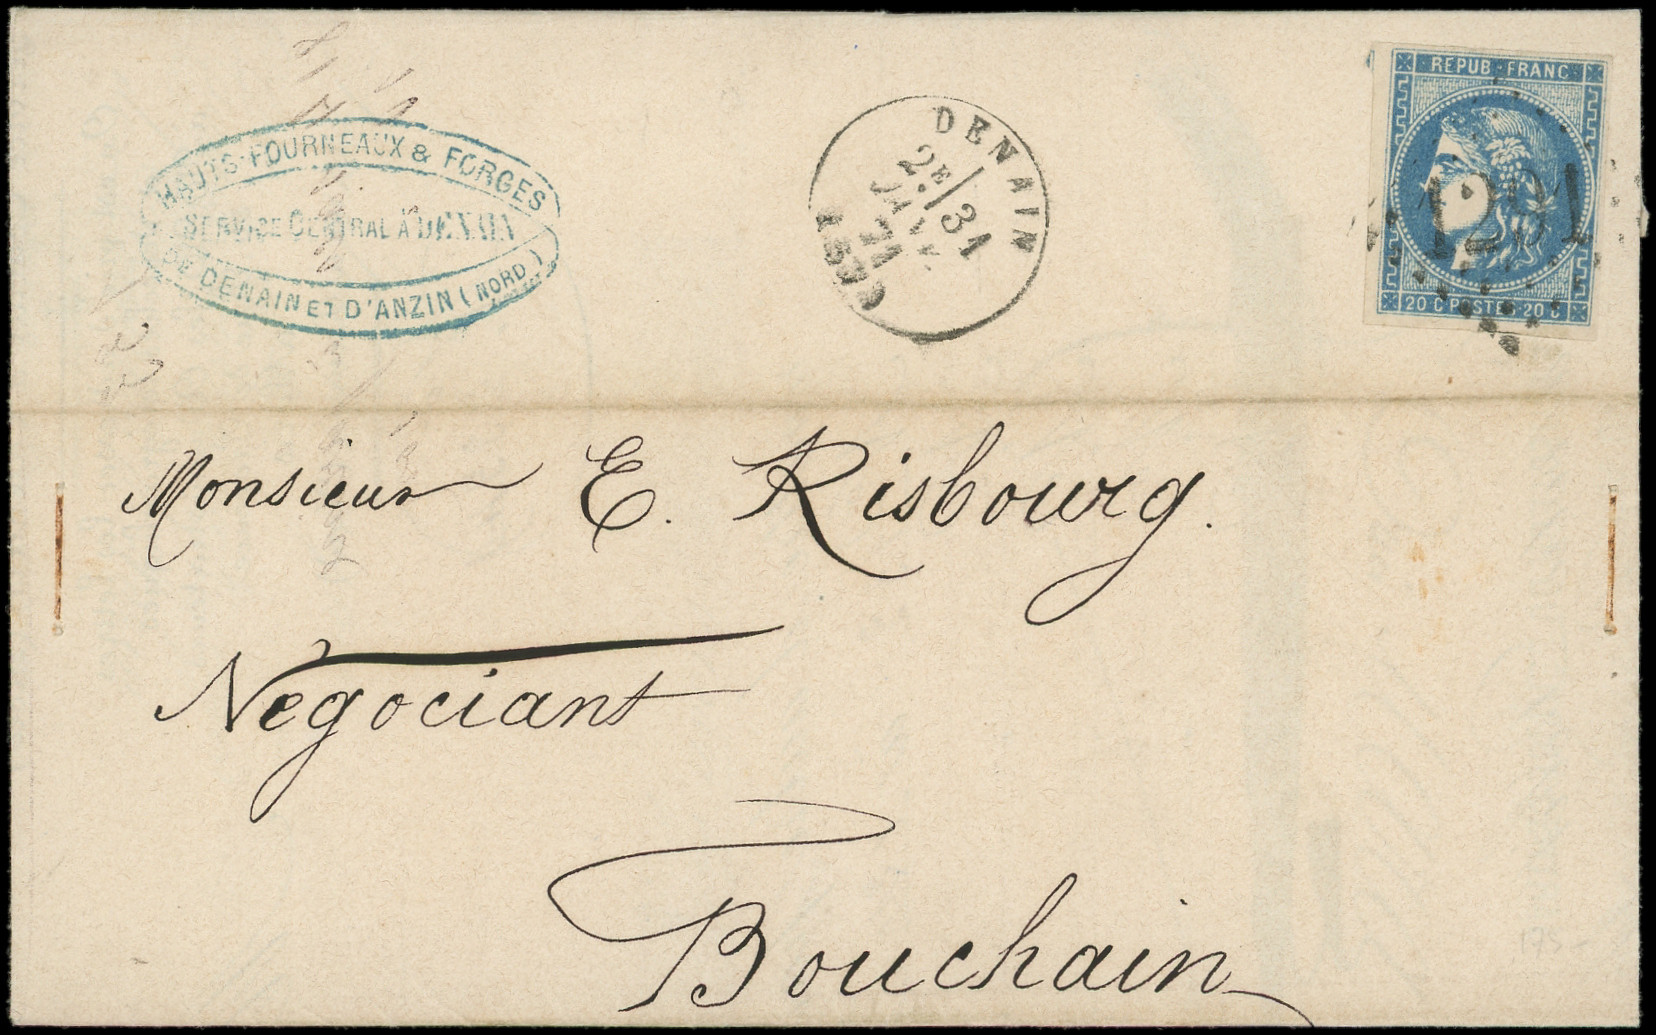 HAUTS-FOURNEAUX & FORGES
SERVICE CENTRAL À DENAIN
DE DENAIN ET D'ANZIN (NORD)
DENAIN
2E/ 31
JANV
71
REPUB·FRANC
20 C·POSTES·20 C
Monsieur E. Risbourg.
Négociant
Bouchain
175-